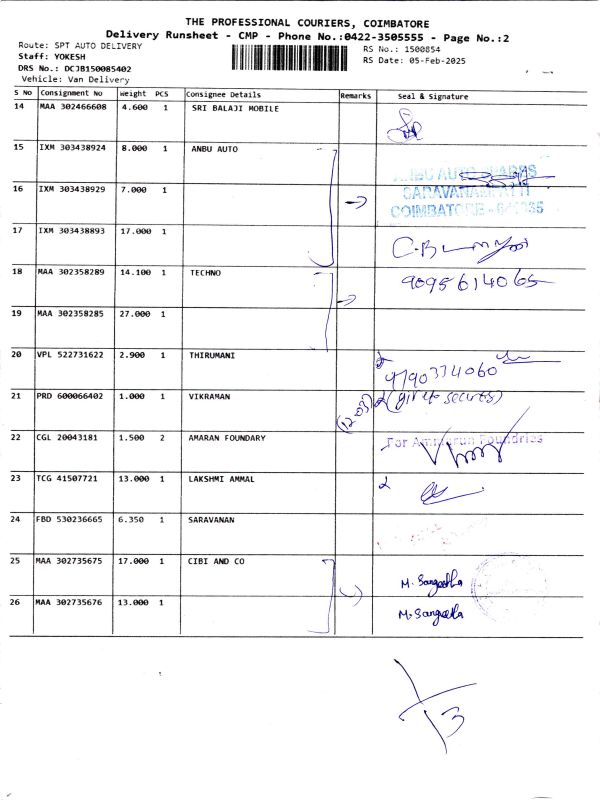 THE PROFESSIONAL COURIERS, COIMBATORE
Delivery Runsheet - CMP - Phone No.:0422-3505555 - Page No.:2
Route: SPT AUTO DELIVERY
RS No.: 1500854
Staff: YOKESH
RS Date: 05-Feb-2025
DRS No.: DCJB150085402
Vehicle: Van Delivery
S No Consignment No Weight PCS Consignee Details Remarks Seal & Signature
14 MAA 302466608 4.600 1 SRI BALAJI MOBILE
15 IXM 303438924 8.000 1 ANBU AUTO
ANBU AUTO
SARAVANAMPATTI
16 IXM 303438929 7.000 1
COIMBATORE - 641035
17 IXM 303438893 17.000 1
18 MAA 302358289 14.100 1 TECHNO
9095614065
19 MAA 302358285 27.000 1
20 VPL 522731622 2.900 1 THIRUMANI
9790374060
21 PRD 600066402 1.000 1 VIKRAMAN
22 CGL 20043181 1.500 2 AMARAN FOUNDARY
For Ammarun Foundries
23 TCG 41507721 13.000 1 LAKSHMI AMMAL
24 FBD 530236665 6.350 1 SARAVANAN
25 MAA 302735675 17.000 1 CIBI AND CO
M. Sangeetha
26 MAA 302735676 13.000 1
M. Sangeetha
13